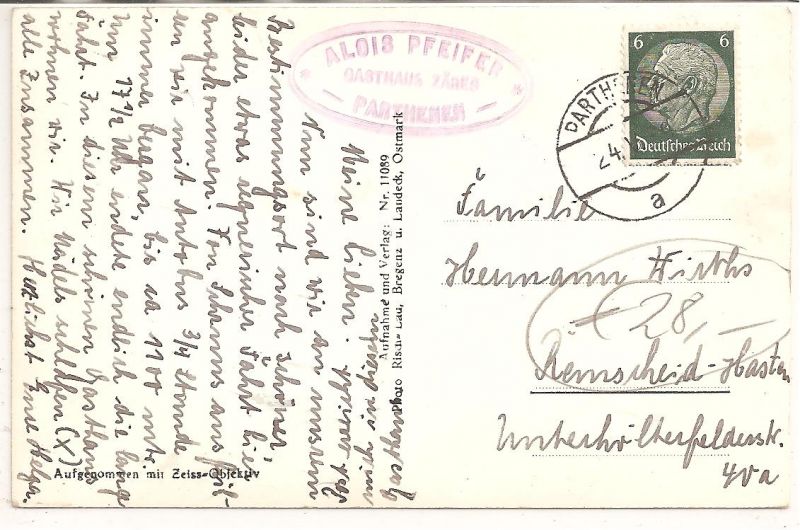 ALOIS PFEIFER
GASTHAUS
PARTHENEN
6 6
Deutsches Reich
PARTHENEN
24.
a
Meine Lieben.
Nun sind wir an unserm
Bestimmungsort nach schöner
leider etwas regnerischer Fahrt hier
angekommen. Von Schruns aus fuh-
ren wir mit Autobus 3/4 Stunde
immer bergan, bis ca 1100 mtr.
Um 17 1/2 Uhr endete endlich die lange
Fahrt. In diesem schönen Gasthaus
wohnen wir. Wir Mädels schlafen (X)
alle zusammen. Herzlichst Eure
in diesem
Aufnahme und Verlag: Nr. 11089
Photo Risch-Lau, Bregenz u. Landeck, Ostmark
Aufgenommen mit Zeiss-Objektiv
Familie
Hermann Wirths
€ 28,—
Remscheid-Hasten
Unterhölterfelderstr.
40a